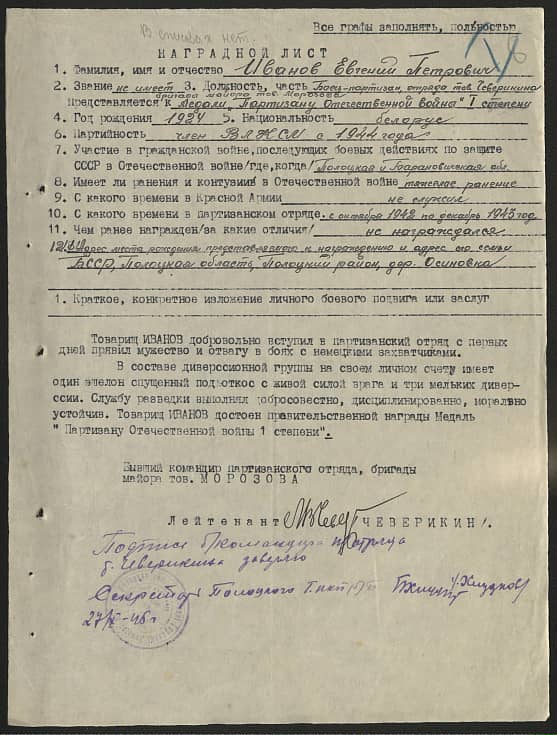 В списках нет.
Все графы заполнять, полностью
НАГРАДНОЙ ЛИСТ
1. Фамилия, имя и отчество Иванов Евгений Петрович
2. Звание не имеет 3. Должность, часть Боец-партизан, отряда тов. Чеверикина
бригада майора тов. Морозова
Представляется к Медали "Партизану Отечественной война" I степени
4. Год рождения 1924 5. Национальность белорус
6. Партийность член ВЛКСМ с 1944 года
7. Участие в гражданской войне, последующих боевых действиях по защите
СССР в Отечественной войне/где, когда/ Полоцкая и Барановичская обл.
8. Имеет ли ранения и контузии в Отечественной войне тяжелое ранение
9. С какого времени в Красной Армии не служил
10. С какого времени в Партизанском отряде. с октября 1942 по декабрь 1943 год.
11. Чем ранее награжден/за какие отличия/ не награждался
12. Адрес места рождения представляемого к награждению и адрес его семьи
БССР, Полоцкая область, Полоцкий район, дер. Осиновка
1. Краткое, конкретное изложение личного боевого подвига или заслуг
Товарищ ИВАНОВ добровольно вступил в партизанский отряд с первых
дней прявил мужество и отвагу в боях с немецкими захватчиками.
В составе диверссионой группы на своем личном счету имеет
один эшелон спущенный подъоткос с живой силой врага и три мельких дивер-
ссии. Службу разведки выполнял добросовестно, дисциплинированно, морально
устойчив. Товарищ ИВАНОВ достоен правительственной награды Медаль
" Партизану Отечественной войны 1 степени".
Бывший командир партизанского отряда, бригады
майора тов. МОРОЗОВА
Лейтенант ЧЕВЕРИКИН/.
Подпись командира отряда
т. Чеверикина заверяю
Секретарь Полоцкого